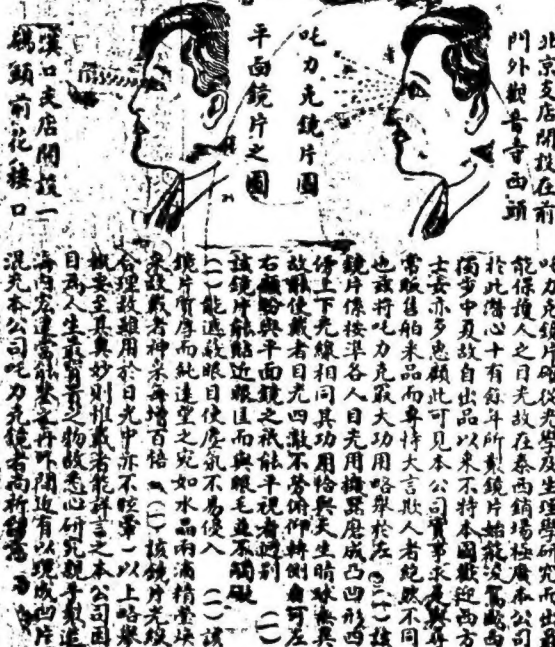 北京支店開設在前
門外觀音寺西頭
吒力克鏡片圖
平面鏡片之圖
漢口支店開設一
碼頭前花樓口
吒力克鏡片確從光學及生理學研究而出
能保護人之目光故在泰西銷場極廣本公司
於此潛心十有餘年所製鏡片始能凌駕歐西
獨步中夏故自出品以來不特本國歡迎西方
士女亦多惠顧此可見本公司實事求是與尋
常販售舶來品而專特大言欺人者絕然不同
也茲將吒力克最大功用略舉於左 (一)該
鏡片係按準各人目光用機器磨成凸凹形四
傍上下光線相同其功用恰與天生睛球無異
故能使戴者目光四散不勞俯仰轉側自可左
右顧盼與平面鏡之祇能平視者迥別 (一)
該鏡片能貼近眼匡而與眼毛並不觸礙
(一)能遮蔽眼目使塵氛不易侵入 (一)該
鏡片質厚而純遠望之宛如水晶兩滴精瑩煥
采故戴者神采每增百倍 (一)該鏡片光線
合理故雖用於日光中亦不眩暈 以上略舉
概要至其奧妙則惟戴者能詳言之本公司因
目為人生最寶貴之物故悉心研究親手製造
海內宏達當能鑒之再外間近有以現成凹片
混充本公司吒力克鏡者尚祈